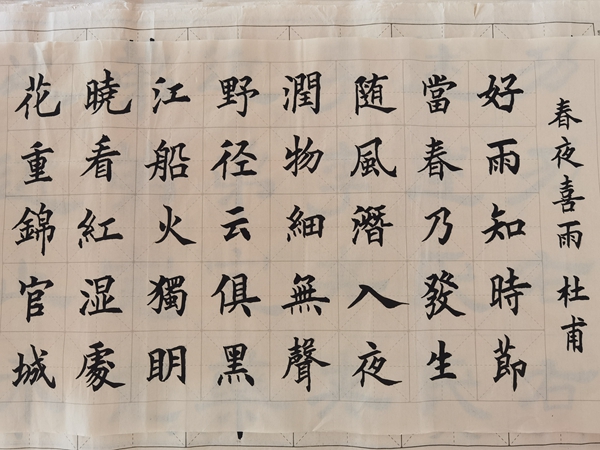 春夜喜雨 杜甫
好雨知時節
當春乃發生
随風潛入夜
潤物細無聲
野径云俱黑
江船火獨明
曉看紅湿處
花重錦官城